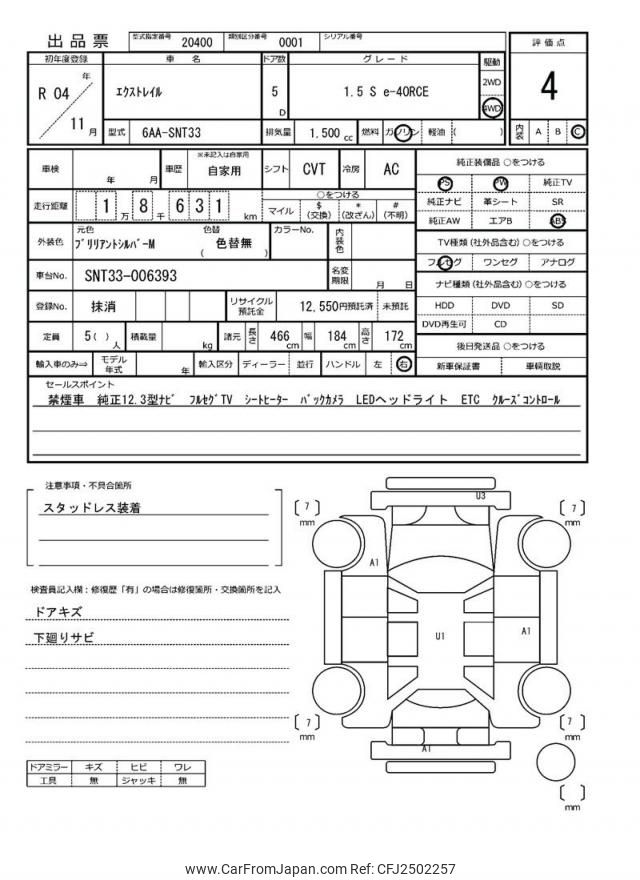 出品票 型式指定番号 20400 類別区分番号 0001 シリアル番号
初年度登録 車名 ドア数 グレード 駆動 評価点
R 04 年 11 月 エクストレイル 5 D 1.5 S e-4ORCE 2WD 4WD 4
型式 6AA-SNT33 排気量 1.500 cc 燃料 ガソリン 軽油 ( ) 内装 A B C
車検 年 月 車歴 ※未記入は自家用 自家用 シフト CVT 冷房 AC 純正装備品 ○をつける
PS PW 純正TV
走行距離 1 万 8 千 6 3 1 km ○をつける
マイル $ (交換) * (改ざん) # (不明)
純正ナビ 革シート SR
純正AW エアB ABS
外装色 元色 ブリリアントシルバーM 色替 ( 色替無 ) カラーNo. 内装色
TV種類 (社外品含む) ○をつける
フルセグ ワンセグ アナログ
車台No. SNT33-006393 名変期限 月 日
ナビ種類 (社外品含む) ○をつける
登録No. 抹消 リサイクル預託金 12,550円預託済 未預託
HDD DVD SD
DVD再生可 CD
定員 5( ) 人 積載量 kg 諸元 長さ 466 cm 幅 184 cm 高さ 172 cm
後日発送品 ○をつける
輸入車のみ⇒ モデル年式 年 輸入区分 ディーラー 並行 ハンドル 左 右
新車保証書 車輌取説
セールスポイント
禁煙車 純正12.3型ナビ フルセグTV シートヒーター バックカメラ LEDヘッドライト ETC クルーズコントロール
注意事項・不具合箇所
スタッドレス装着
検査員記入欄：修復歴「有」の場合は修復箇所・交換箇所を記入
ドアキズ
下廻りサビ
ドアミラー キズ ヒビ ワレ
工具 無 ジャッキ 無
U3
7 mm
7 mm
A1
U1
A1
7 mm
7 mm
A1
mm
www.CarFromJapan.com Ref: CFJ2502257